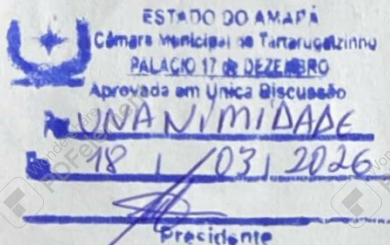 ESTADO DO AMAPÁ
Câmara Municipal de Tartarugalzinho
PALACIO 17 de DEZEMBRO
Aprovada em Única Discussão
UNANIMIDADE
18 / 03 / 2026
Presidente